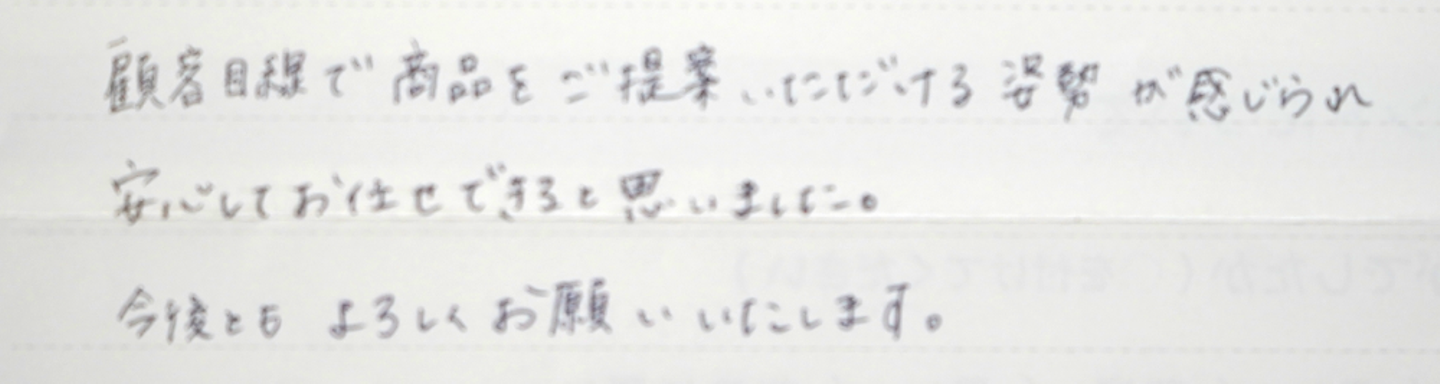 顧客目線で商品をご提案いただける姿勢が感じられ
安心してお任せできると思いました。
今後とも よろしくお願いいたします。